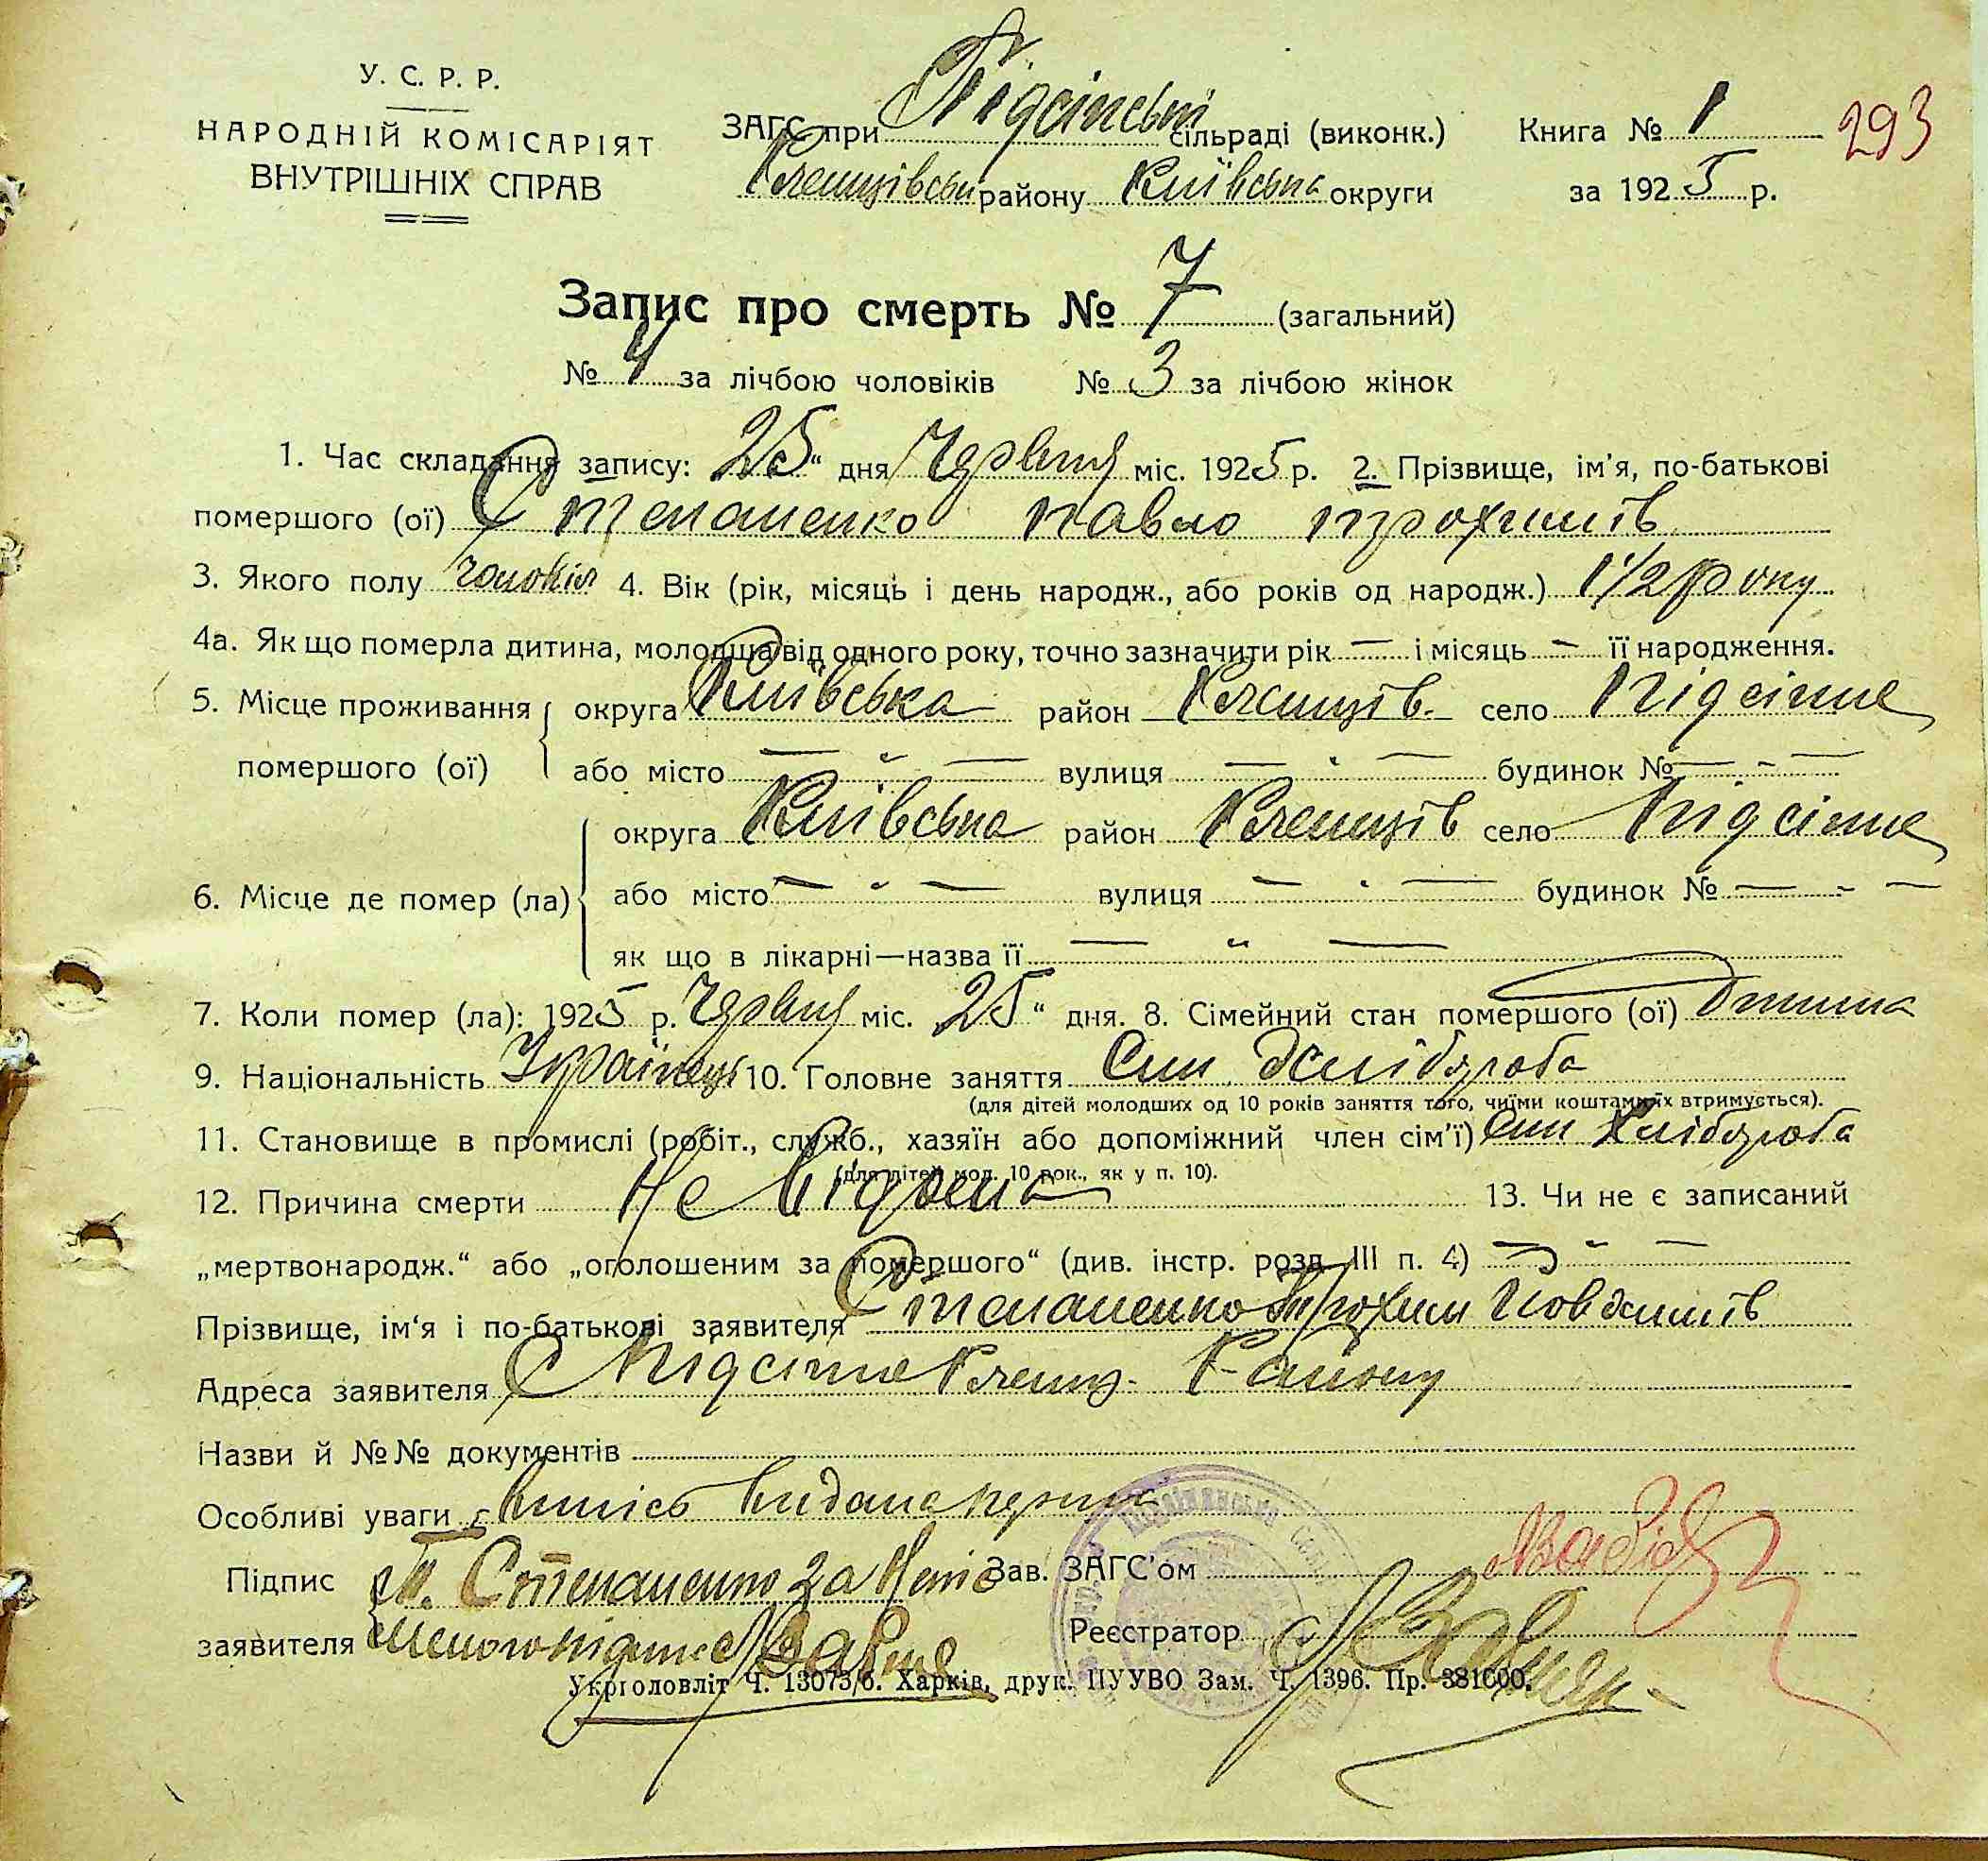 У. С. Р. Р.
НАРОДНІЙ КОМІСАРІЯТ
ВНУТРІШНІХ СПРАВ
ЗАГС при Підсінській сільраді (виконк.)
района Київська округи
Книга № 1
за 1925 р.
293
Запис про смерть № 7 (загальний)
№ 4 за лічбою чоловіків № 3 за лічбою жінок
1. Час складання запису: 25" дня Червня міс. 1925 р. 2. Прізвище, ім'я, по-батькові
помершого (ої) Степаненко Павло Трохимів
3. Якого полу чоловіч 4. Вік (рік, місяць і день народж., або років од народж.) 1 1/2 року
4а. Як що померла дитина, молодша від одного року, точно зазначити рік — і місяць — її народження.
5. Місце проживання помершого (ої) округа Київська район село Підсінне
або місто — " — вулиця — " — будинок № — " —
6. Місце де помер (ла) округа Київська район село Підсінне
або місто — " — вулиця — " — будинок № — " —
як що в лікарні—назва її — " —
7. Коли помер (ла): 1925 р. Червня міс. 25" дня. 8. Сімейний стан помершого (ої) Дитина
9. Національність Українець 10. Головне заняття Син Хлібороба
(для дітей молодших од 10 років заняття того, чиїми коштами їх втримується).
11. Становище в промислі (робіт., служб., хазяїн або допоміжний член сім'ї) Син Хлібороба
(для дітей мол. 10 рок., як у п. 10).
12. Причина смерти Не Відома 13. Чи не є записаний
„мертвонародж.“ або „оголошеним за помершого“ (див. інстр. розд. III п. 4) — " —
Прізвище, ім'я і по-батькові заявителя Степаненко Трохим
Адреса заявителя С Підсінне Району
Назви й №№ документів
Особливі уваги випись видана
Підпис Т. Степаненко за Зав. ЗАГС'ом
заявителя Реєстратор
Укрголовліт Ч. 13073/6. Харків, друк. ПУУВО Зам. Ч. 1396. Пр. 381000.